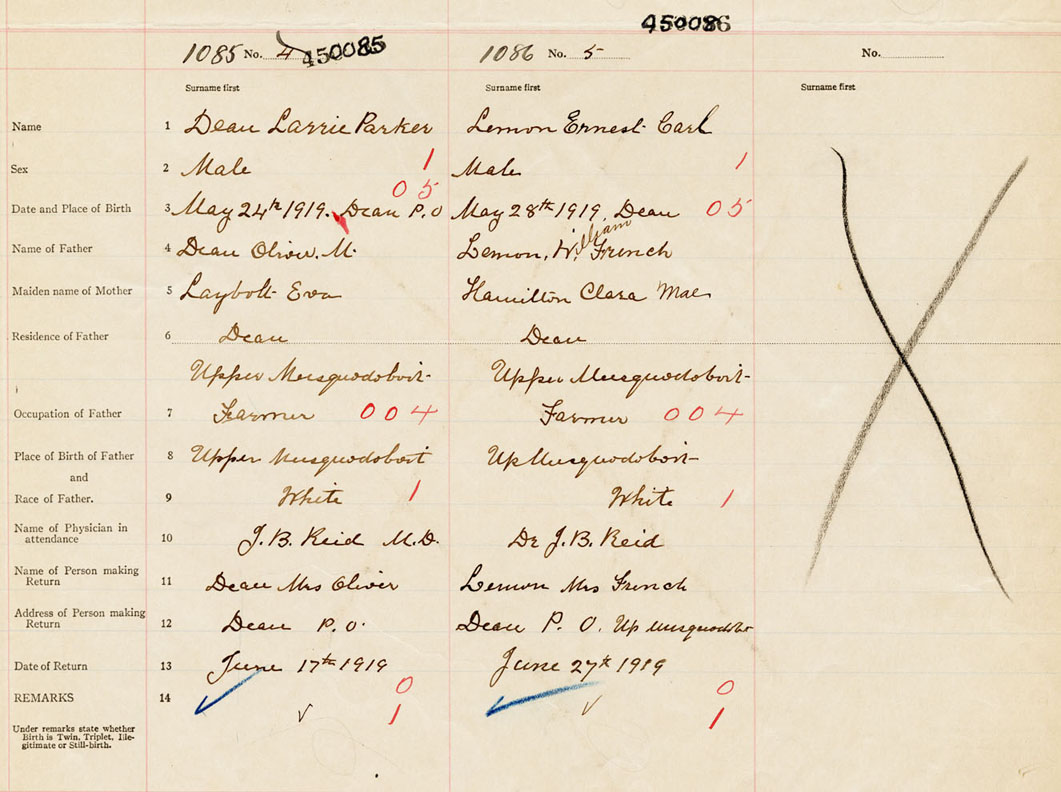 450086
1085 No. 4 450085 1086 No. 5 No.
Surname first Surname first Surname first
Name 1 Dean Larrie Parker Lemon Ernest Carl
Sex 2 Male 1 Male 1
05
Date and Place of Birth 3 May 24th 1919. Dean P.O May 28th 1919, Dean 05
William
Name of Father 4 Dean Oliver. M. Lemon, W. French
Maiden name of Mother 5 Laybolt Eva Hamilton Clara Mae
Residence of Father 6 Dean Dean
Upper Musquodoboit Upper Musquodoboit
Occupation of Father 7 Farmer 004 Farmer 004
Place of Birth of Father 8 Upper Musquodoboit Up Musquodoboit
and
Race of Father. 9 White 1 White 1
Name of Physician in
attendance 10 J.B. Reid M.D. Dr J.B. Reid
Name of Person making
Return 11 Dean Mrs Oliver Lemon Mrs French
Address of Person making
Return 12 Dean P.O. Dean P.O. Up Musquodobt
Date of Return 13 June 17th 1919 June 27th 1919
0 0
REMARKS 14 1 1
Under remarks state whether
Birth is Twin, Triplet, Ille-
gitimate or Still-birth.